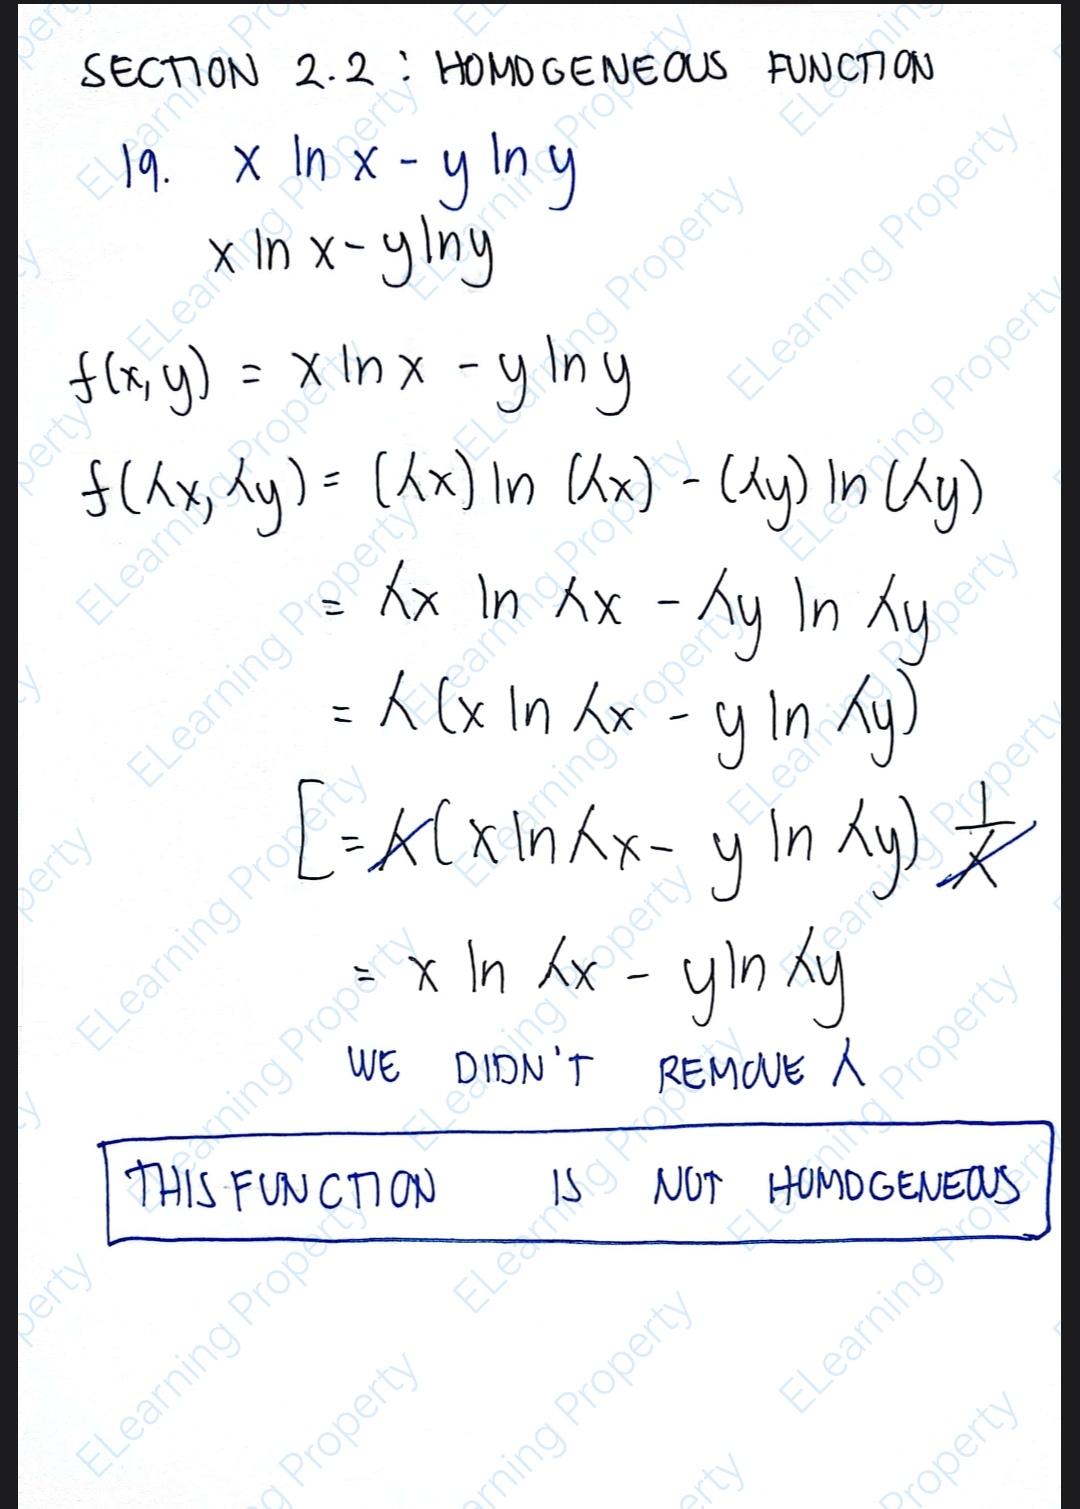 SECTION 2.2 : HOMOGENEOUS FUNCTION
19. x ln x - y ln y
x ln x - y ln y
f(x, y) = x ln x - y ln y
f(λx, λy) = (λx) ln (λx) - (λy) ln (λy)
= λx ln λx - λy ln λy
= λ (x ln λx - y ln λy)
[ = λ(x ln λx - y ln λy) 1/λ
= x ln λx - y ln λy
WE DIDN'T REMOVE λ
THIS FUNCTION IS NOT HOMOGENEOUS
ELearning Property